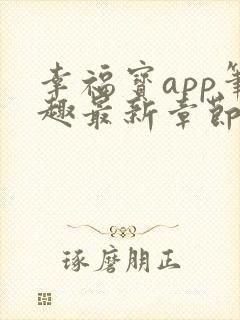 幸福宝app笔
趣最新章节
琢磨朋正